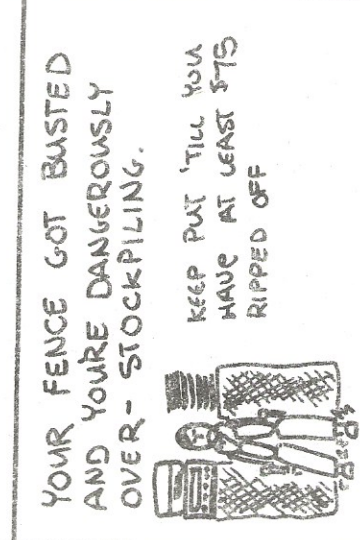 YOUR FENCE GOT BUSTED
AND YOU'RE DANGEROUSLY
OVER-STOCKPILING.
KEEP PUT 'TILL YOUR
HAVE AT LEAST $75
RIPPED OFF